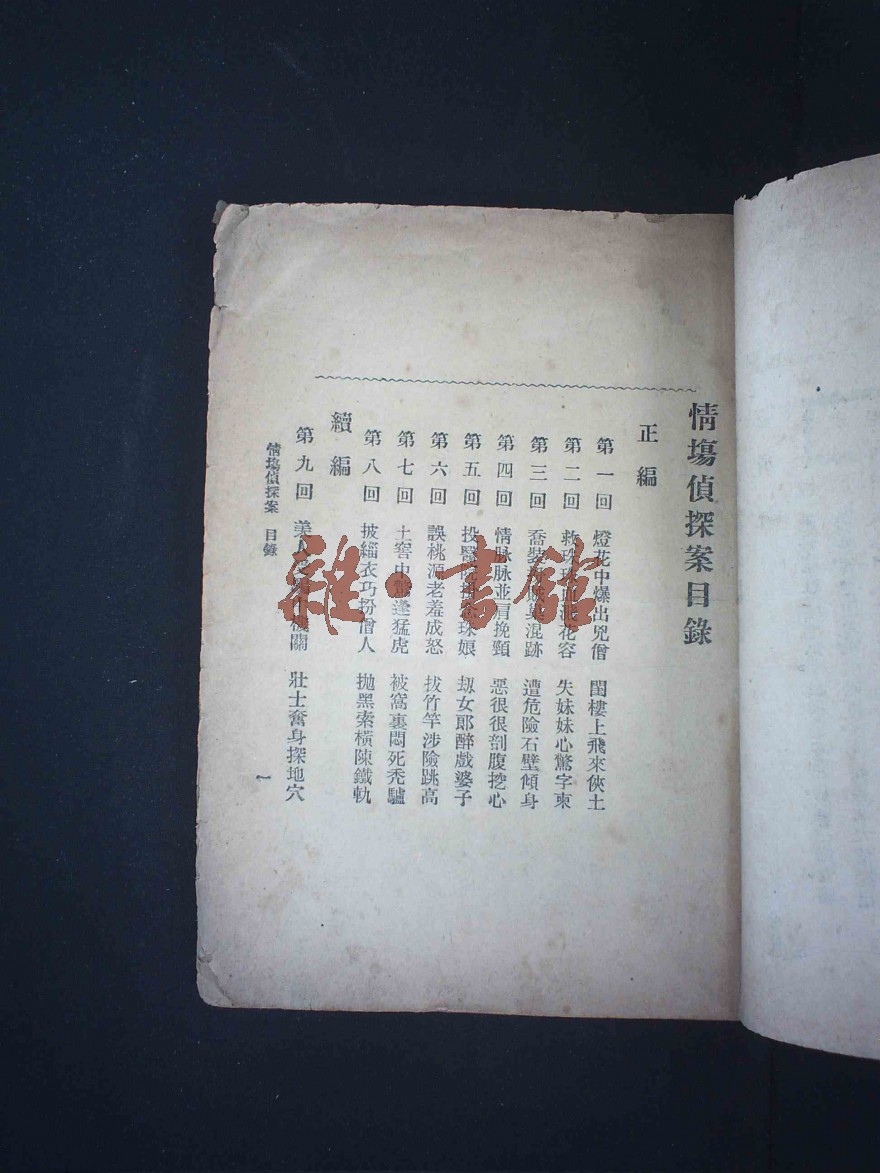 情塲偵探案目錄
正編
第一回 燈花中爆出兇僧 閨樓上飛來俠士
第二回 花容 失妹妹心驚字柬
第三回 喬裝 混跡 遭危險石壁傾身
第四回 情脉脉並肩挽頸 惡很很剖腹挖心
第五回 投醫院 珠娘 刼女郎醉戲婆子
第六回 誤桃源老羞成怒 拔竹竿涉險跳高
第七回 土窖中驚逢猛虎 被窩裏悶死禿驢
第八回 披緇衣巧扮僧人 拋黑索橫陳鐵軌
續編
第九回 美人 機關 壯士奮身探地穴
情塲偵探案 目錄
一
雜·書館